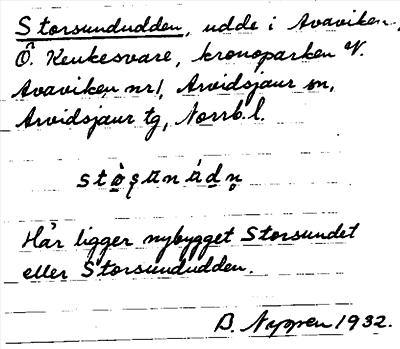 Storsundudden, udde i Avaviken,
Ö. Keukesvare, kronoparken V.
Avaviken nr1, Arvidsjaur sn,
Arvidsjaur tg, Norrb. l.
Här ligger nybygget Storsundet
eller Storsundudden.
B. Nyggren 1932.